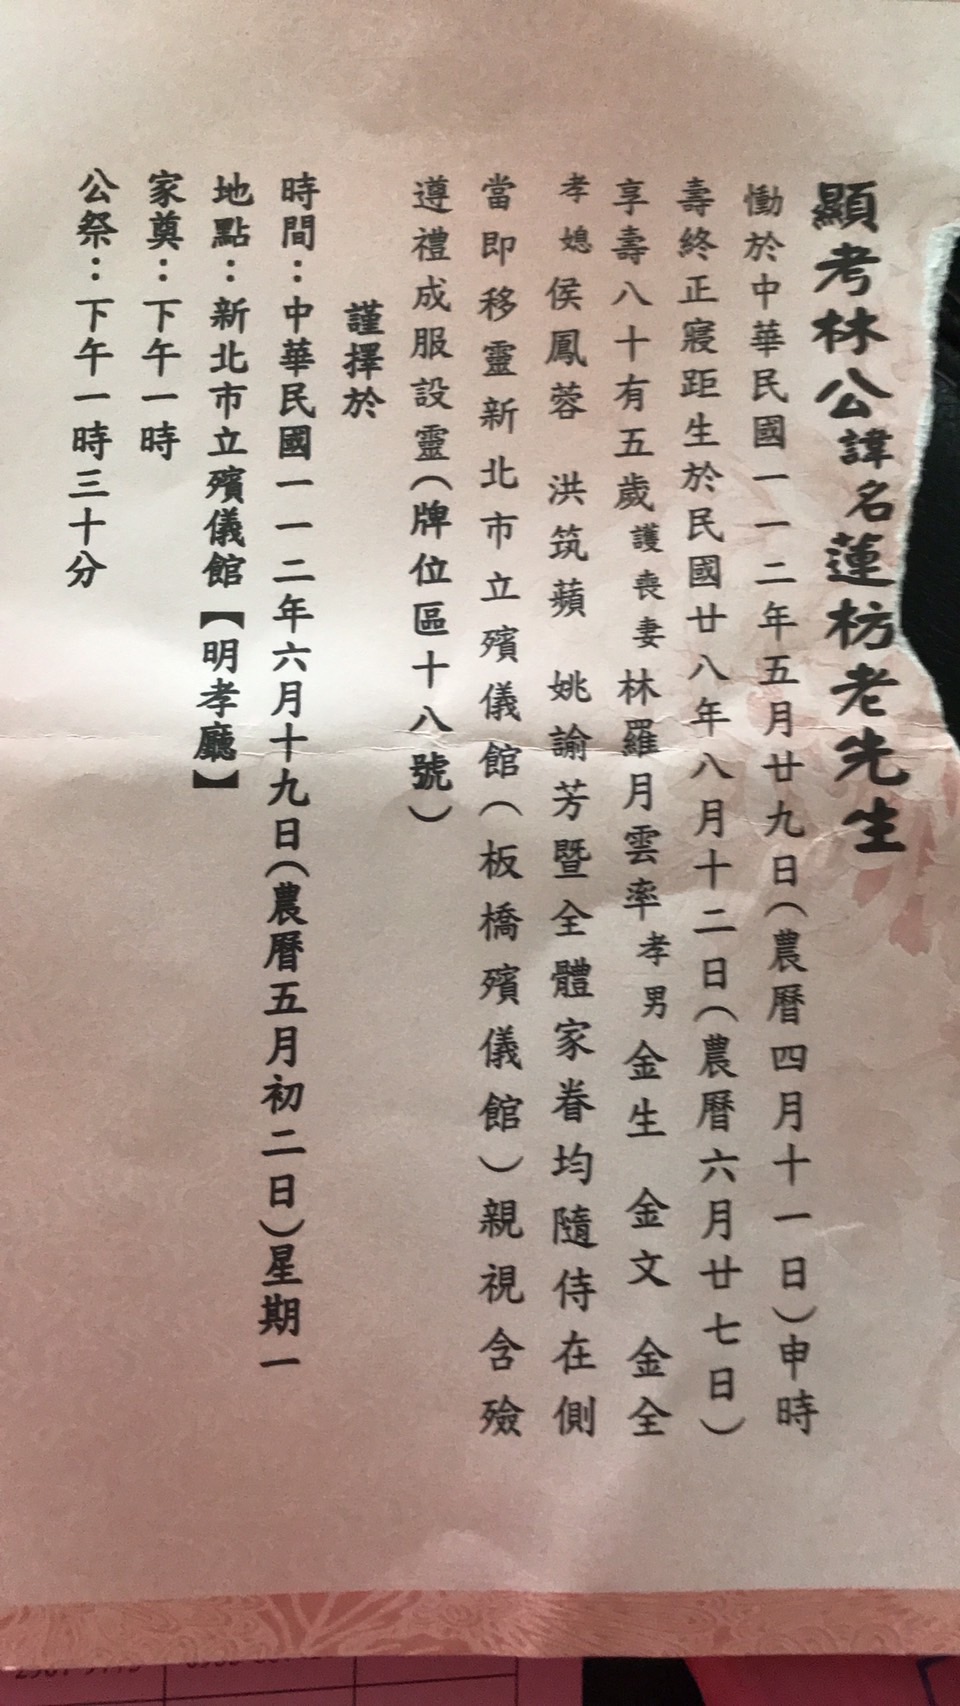 顯考林公諱名蓮枋老先生
慟於中華民國一一二年五月廿九日(農曆四月十一日)申時
壽終正寢距生於民國廿八年八月十二日(農曆六月廿七日)
享壽八十有五歲護喪妻林羅月雲率孝男金生 金文 金全
孝媳侯鳳蓉 洪筑蘋 姚諭芳暨全體家眷均隨侍在側
當即移靈新北市立殯儀館(板橋殯儀館)親視含殮
遵禮成服設靈(牌位區十八號)
謹擇於
時間：中華民國一一二年六月十九日(農曆五月初二日)星期一
地點：新北市立殯儀館【明孝廳】
家奠：下午一時
公祭：下午一時三十分